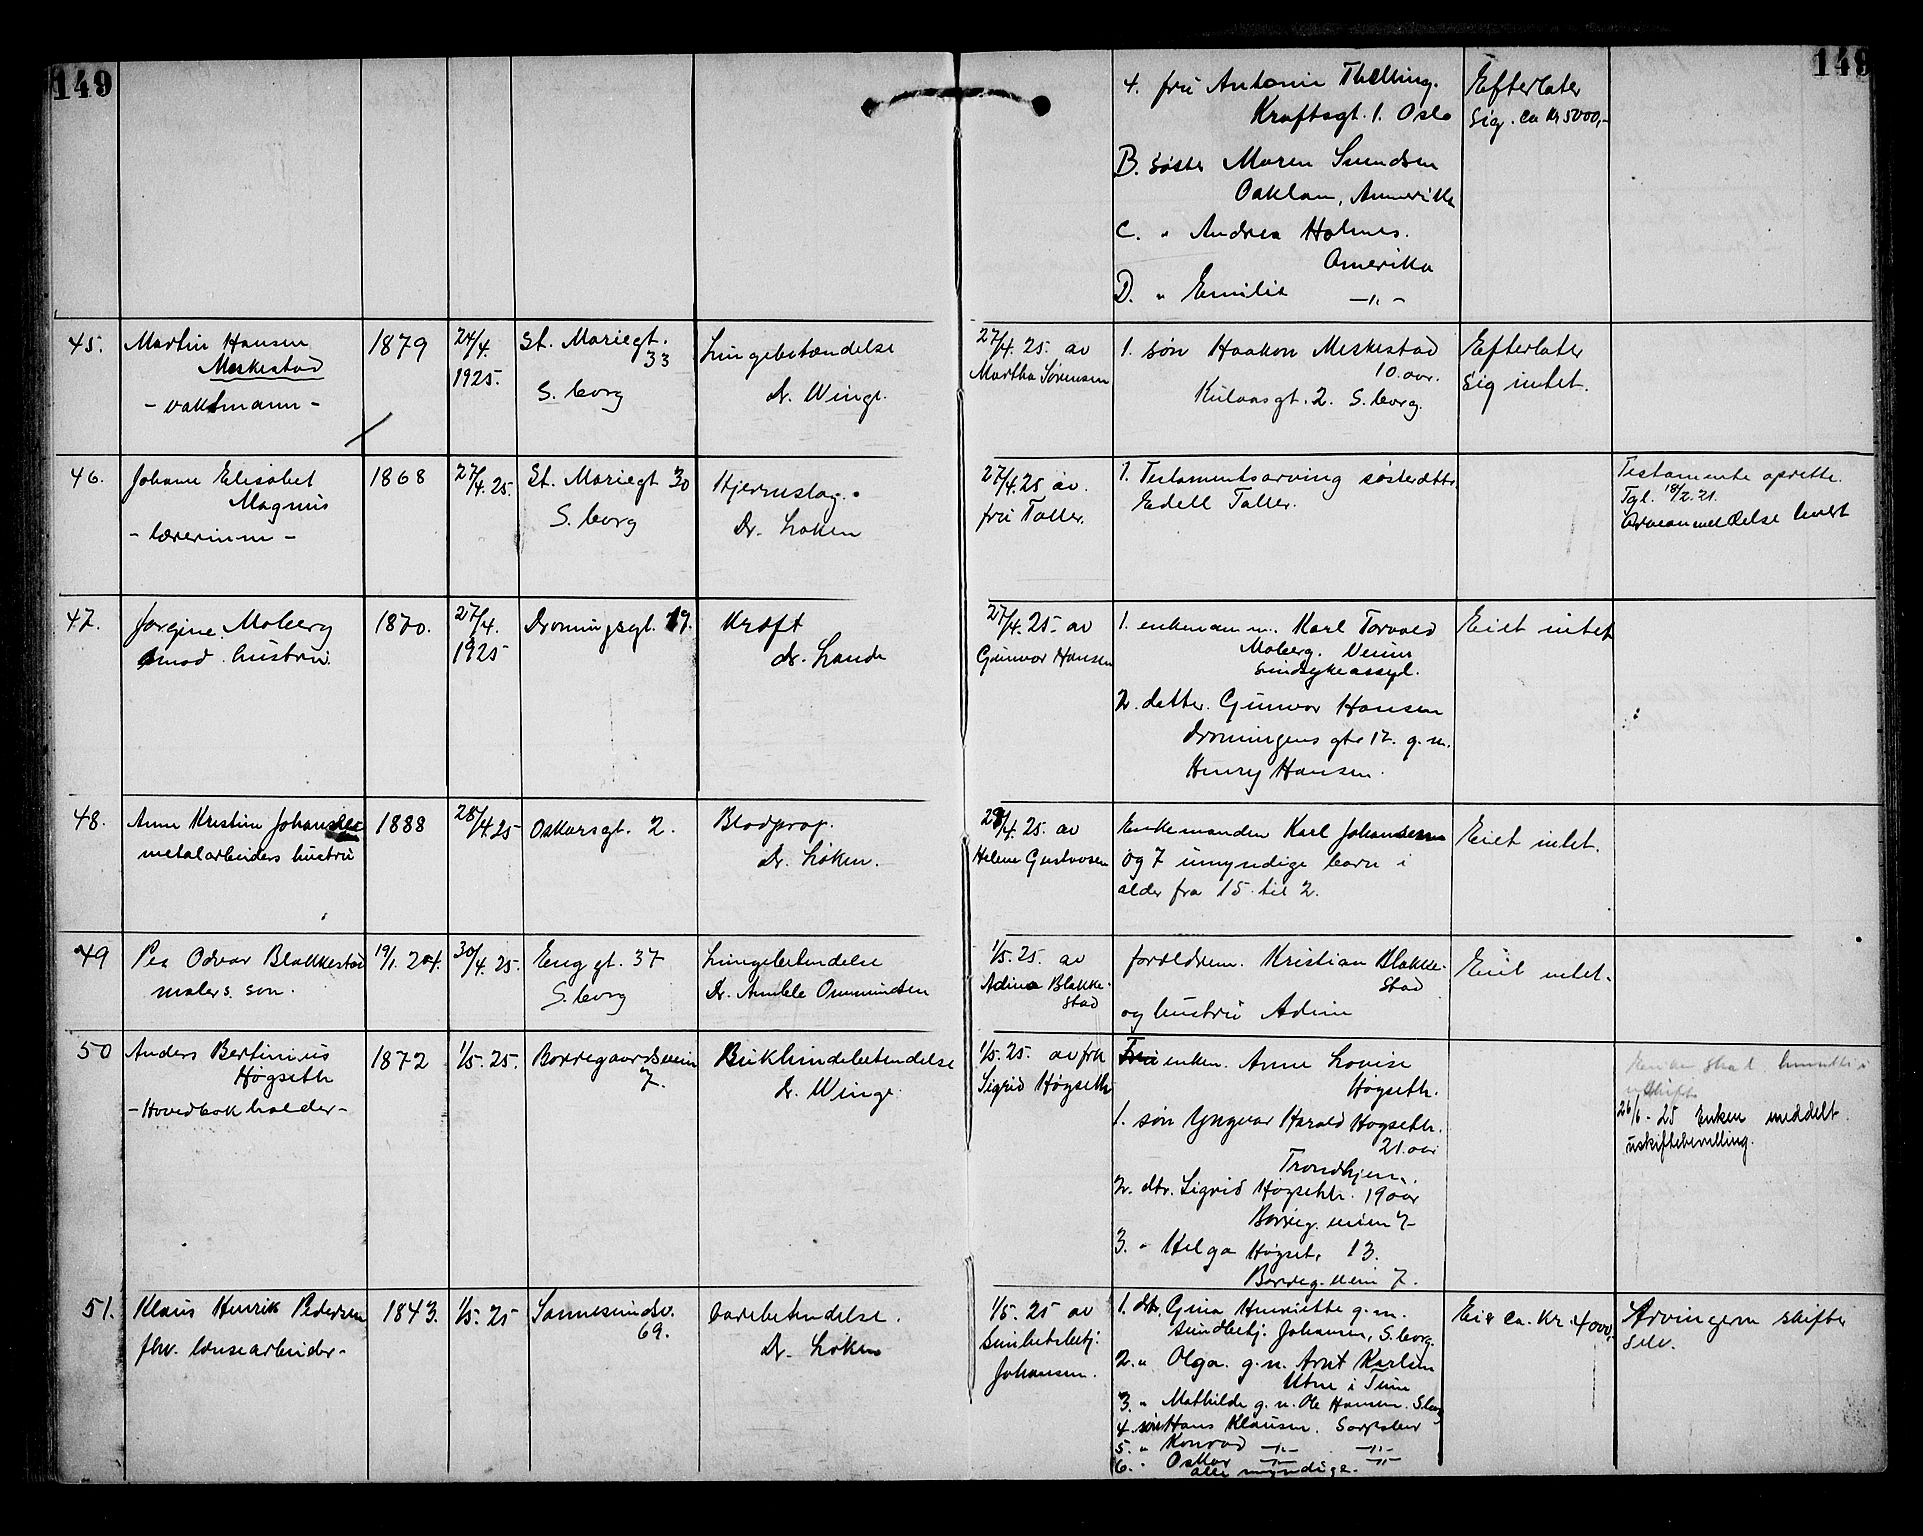 149
149
4. fru Antonie Thelling.
Kraftsgt. 1. Oslo
Efterlater
sig. ca Kr 5000,-
B. søster Maren Svendsen
Oaklan, Amerika
C. " Andrea Holmes.
Amerika
D. " Emilie -"-
45. Martin Hansen
Meskestad
- vaktmann -
1879
24/4.
1925.
St. Mariegt.
33
S.borg
Lungebetændelse
Dr. Winge.
27/4. 25. av
Martha Sørensen
1. søn Haakon Meskestad
10 aar.
Kulaasgt. 2. S.borg.
Efterlater
sig intet.
46. Johane Elisabet
Magnus
- lærerinne -
1868
27/4. 25.
St. Mariegt 30
S.borg
Hjerneslag.
Dr. Løken
27/4. 25 av.
fru Taller.
1. Testamentsarving søsterdatter
Edell Taller.
Testamente oprette.
Tgl. 18/2. 21.
Arveanmeldelse levert
47. Jørgine Moberg
smed hustru.
1870.
27/4.
1925
Dronningsgt. 19.
Kræft
dr. Lande
27/4. 25. av
Gunvor Hansen
1. enkemann. Karl Torvald
Moberg. Veum
sindsykeasyl.
2. datter. Gunvor Hansen
Dronningens gte 12. g.m.
Henry Hansen.
Eiet intet
48. Anne Kristine Johansen
metalarbeiders hustru
1888
28/4. 25
Oskarsgt. 2.
Blodprop.
Dr. Løken.
28/4. 25. av
Helene Gustavsen
Enkemanden Karl Johansen
og 7 umyndige barn i
alder fra 15 til 2.
Eiet intet.
49 Per Odvar Blakkestad
malers søn.
19/1. 24.
30/4. 25.
Enggt. 37
S.borg
Lungebetendelse
Dr. Amble Ommundsen
1/5. 25. av
Adina Blakke-
stad
foreldrene. Kristian Blakke-
stad
og hustru Adine
Eiet intet.
50 Anders Bertinius
Høgseth
- Hovedbokholder -
1872
1/5. 25.
Borregaardsveien
7.
Bukhindebetendelse
Dr. Winge
1/5. 25. av frk
Sigrid Høgseth
enken. Anne Lovise
Høgseth.
1. søn Yngvar Harald Høgseth.
21 aar
Trondhjem.
2. dtr. Sigrid Høgseth. 19 aar
Borreg. veien 7
3. " Helga Høgset. 13.
Borreg. veien 7.
Enken skal
uskifte
26/6 - 25 Enken meddelt
uskiftebevilling.
51. Klaus Henrik Pedersen
fhv. lensearbeider -
1843.
1/5. 25
Sannesundsv.
69.
Aarebetendelse.
Dr. Løken
1/5. 25 av
sundbetbetj.
Johansen.
1. dtr. Gina Henriette g.m.
sundbetj. Johansen, S.borg.
2. " Olga. g.m. Arnt Karlsen
Utne i Tune
3. " Mathilde g.m. Ole Hansen. S.borg
4. søn Hans Klausen. Sarpsborg
5. " Konrad -"- -"-
6. " Oskar -"- -"-
alle myndige.
Eier ca. Kr. 4000,-
Arvingerne skifter
selv.